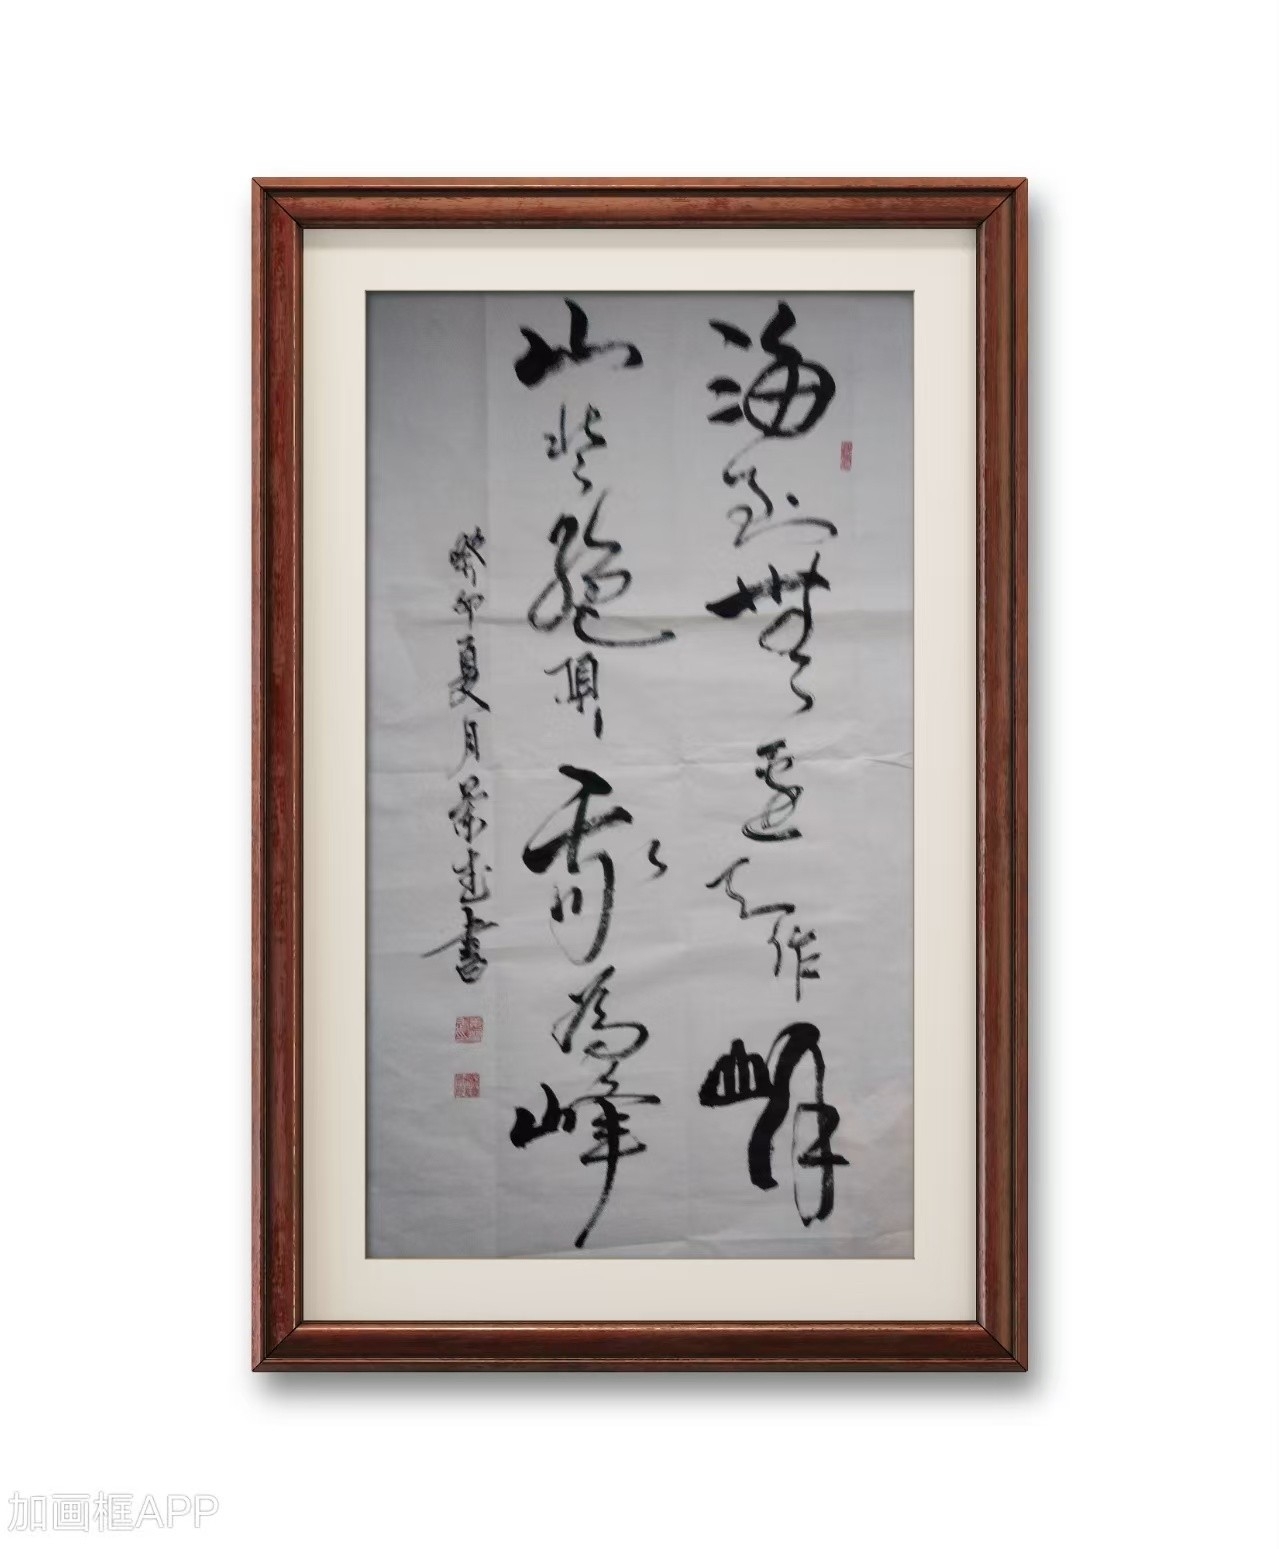 海到無邊天作岸
山登絕頂我為峰
癸卯夏月書
加画框APP